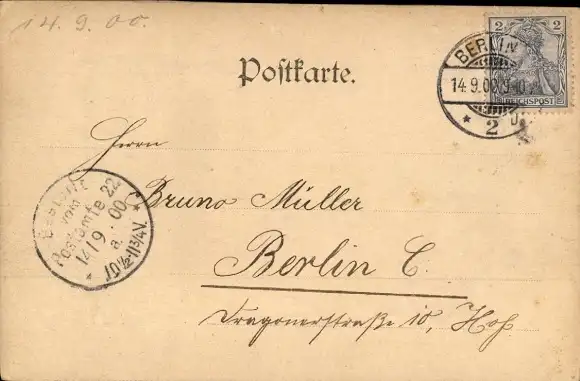 14.9.00.
2 2
REICHSPOST
BERLIN
14.9.00.9-10
* 2
Postkarte.
Herrn
Bestellt
vom
Postamte 22
14/9 00
a.
* 10½-11¾V. *
Bruno Müller
Berlin C.
Dragonerstraße 10, Hof